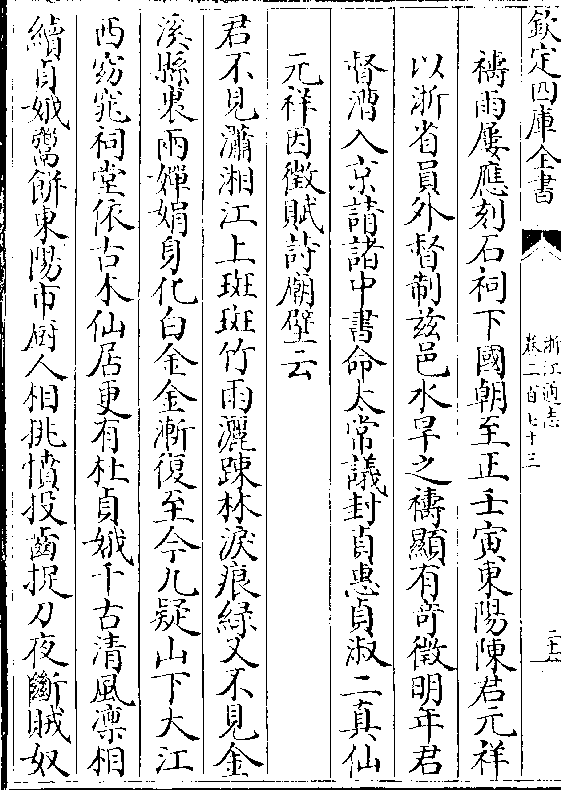 欽定四庫全書
浙江通志
卷二百七十三
禱雨屢應刻石祠下國朝至正壬寅東陽陳君元祥
以浙省員外督制兹邑水旱之禱顯有竒徵明年君
督漕入京請諸中書命太常議封貞惠貞淑二真仙
元祥因徵賦詩廟壁云
君不見瀟湘江上斑斑竹雨灑踈林淚痕綠又不見金
溪縣裏兩嬋娟身化白金金漸復至今九疑山下大江
西窈窕祠堂依古木仙居更有杜貞娥千古清風凛相
續貞娥鬻餅東陽市厨人相挑憤投齒捉刀夜斷賊奴